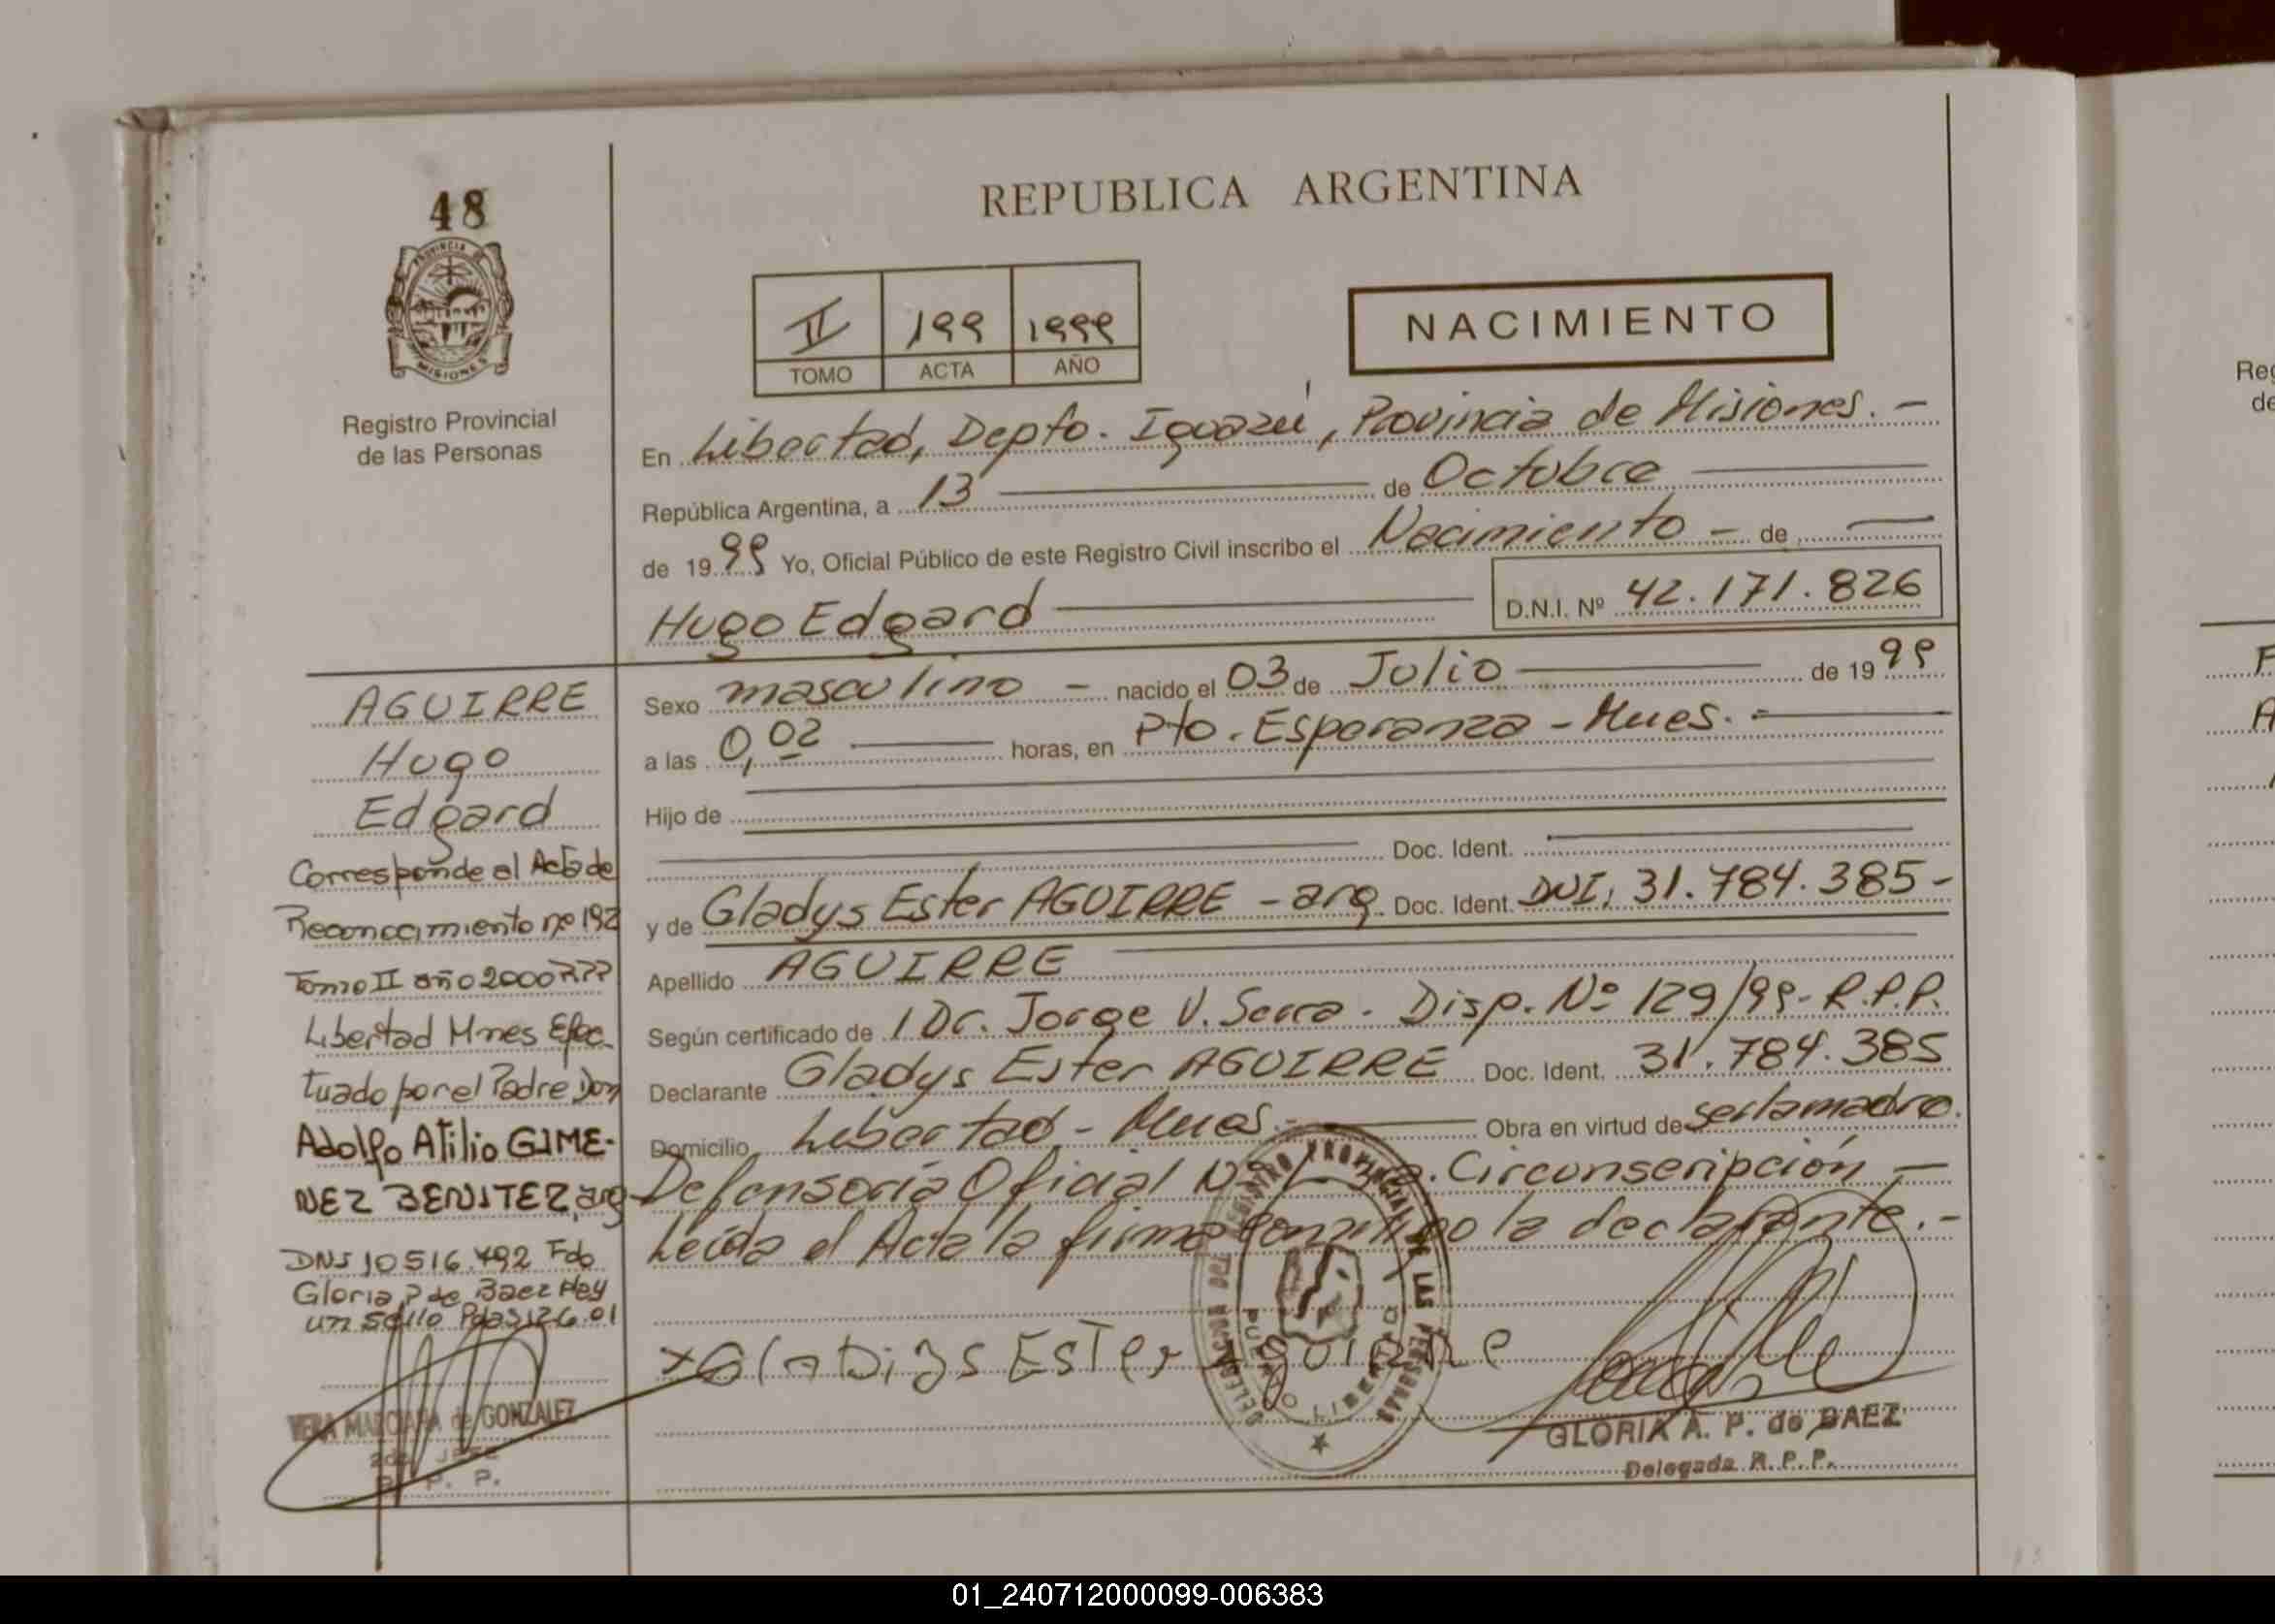 48
PROVINCIA DE
MISIONES
Registro Provincial
de las Personas
REPUBLICA ARGENTINA
II 199 1999
TOMO ACTA AÑO
NACIMIENTO
En Libertad, Depto. Iguazú, Provincia de Misiones.-
República Argentina, a 13 de Octubre
de 1999 Yo, Oficial Público de este Registro Civil inscribo el Nacimiento - de
Hugo Edgard
D.N.I. Nº 42.171.826
Sexo masculino - nacido el 03 de Julio de 1999
a las 0,02 horas, en Pto. Esperanza - Mnes.-
Hijo de
Doc. Ident.
y de Gladys Ester AGUIRRE - arg. Doc. Ident. DNI, 31.784.385-
Apellido AGUIRRE
Según certificado de Dr. Jorge V. Serra. Disp. Nº 129/99- R.P.P.
Declarante Gladys Ester AGUIRRE Doc. Ident. 31.784.385
Domicilio Libertad - Mnes.- Obra en virtud de ser la madre.
Defensoría Oficial Circunscripción -
Leída el Acta la firma conmigo la declarante.-
x Gladigs Ester Aguirre
GLORIA A. P. de BAEZ
Delegada R. P. P.
AGUIRRE
Hugo
Edgard
Corresponde al Acta de
Reconocimiento nº 192
Tomo II año 2000 RPP
Libertad Mnes Efec-
tuado por el Padre Don
Adolfo Atilio GIME-
NEZ BENITEZ, arg
DNI 10516.492 Fdo
Gloria P de Baez Hay
un sello Pdas 126.01
VERA MARCIARA de GONZALEZ
2da JEFE
R. P. P.
REGISTRO PROVINCIAL DE LAS PERSONAS
PUERTO LIBERTAD
01_240712000099-006383